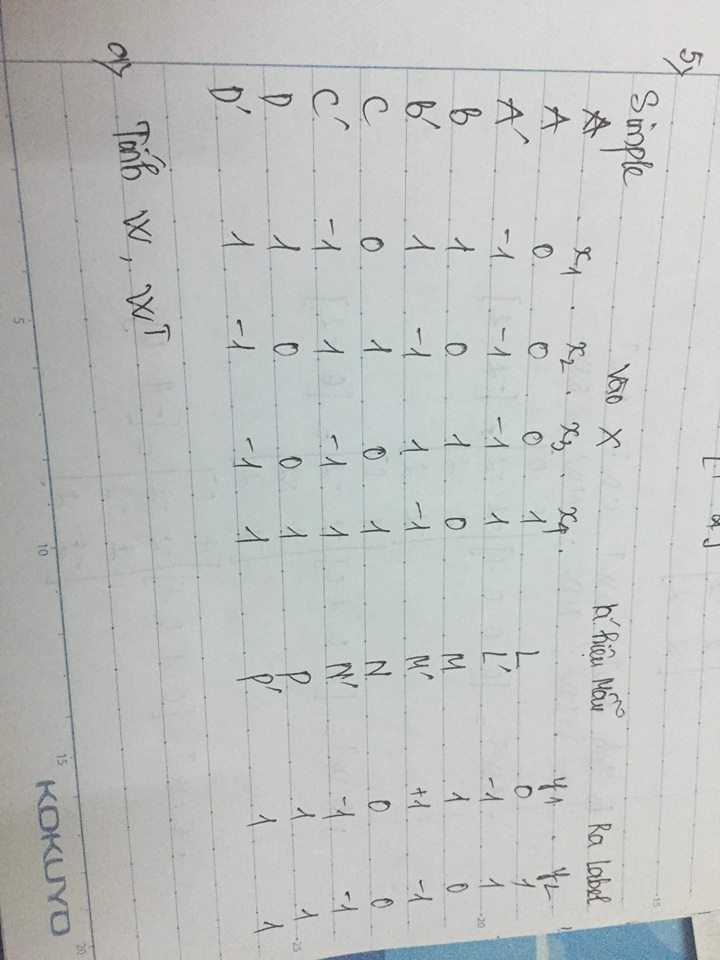 [1 2]
5)
Simple Vào X Kí hiệu Mẫu Ra Label
A x1 x2 x3 x4 y1 y2
A 0 0 0 1 L 0 1
A' -1 -1 -1 1 L' -1 1
B 1 0 1 0 M 1 0
B' 1 -1 1 -1 M' +1 -1
C 0 1 0 1 N 0 0
C' -1 1 -1 1 N' -1 -1
D 1 0 0 1 P 1 1
D' 1 -1 -1 1 P' 1 1
a) Tính W, W^T
KOKUYO
5 10 15 20
15
20
25